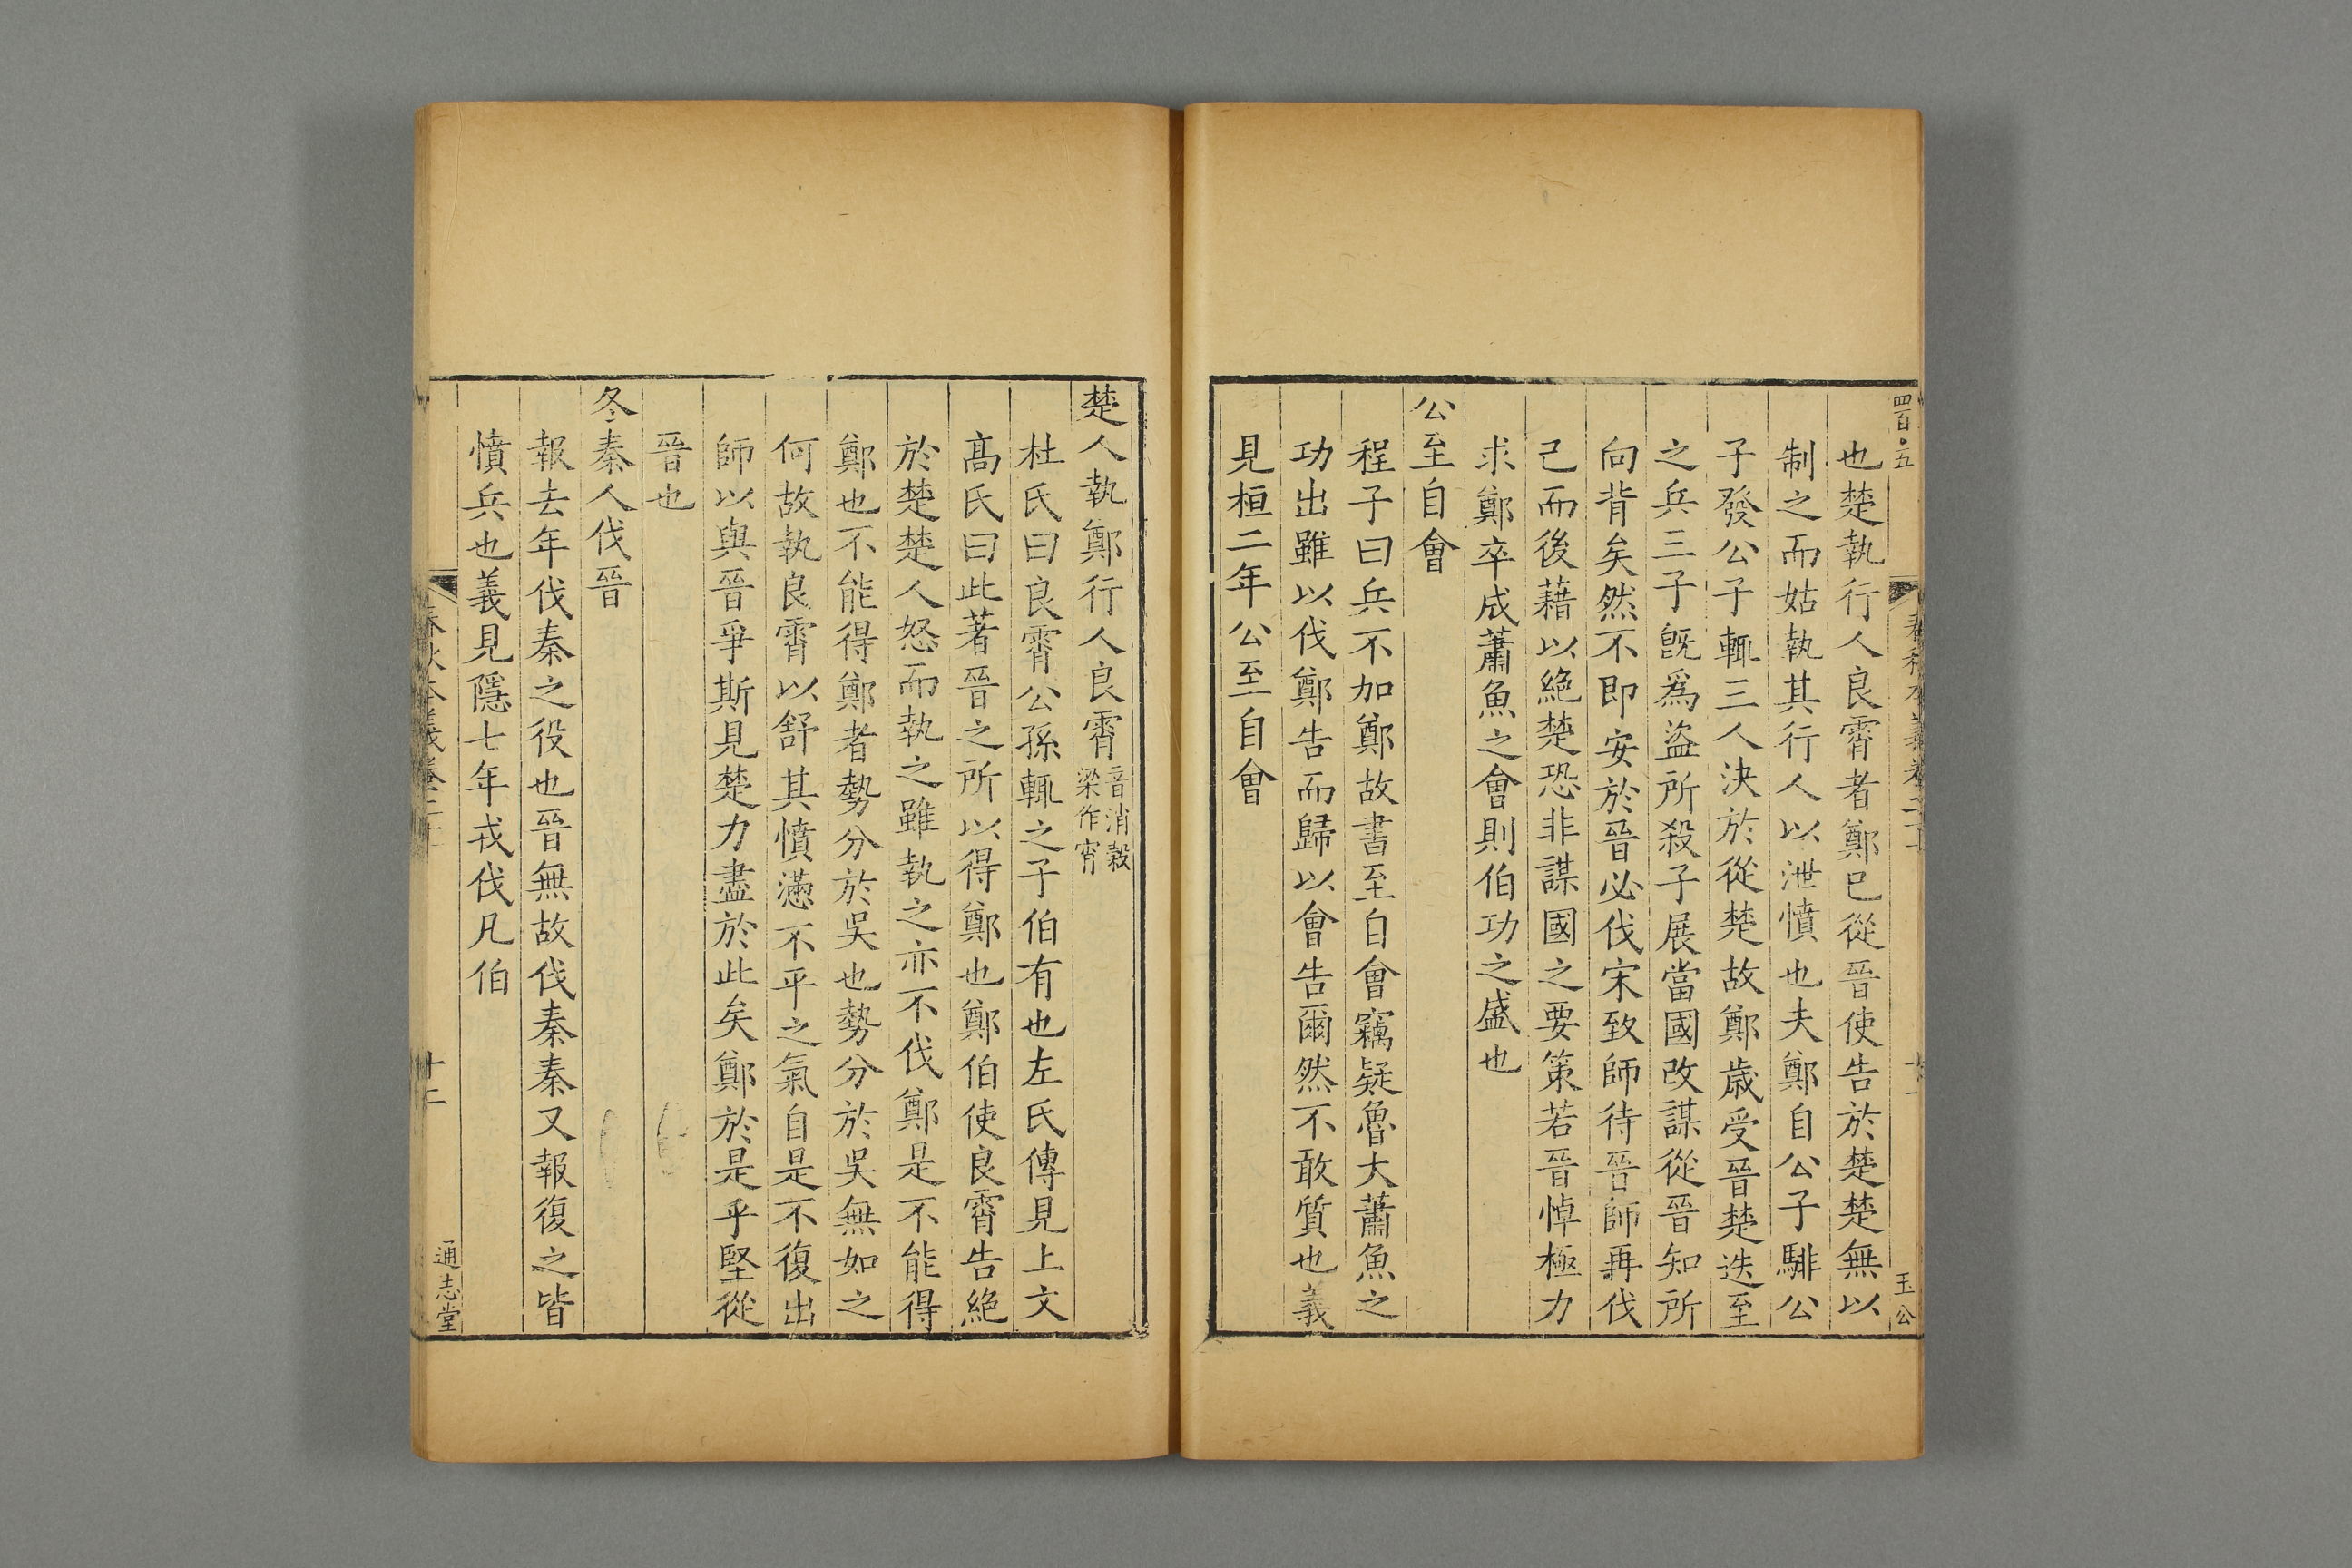 四百·五
春秋本義卷二十
玉公
也楚執行人良霄者鄭巳從晉使告於楚楚無以
制之而姑執其行人以泄憤也夫鄭自公子騑公
子發公子輒三人決於從楚故鄭歲受晉楚迭至
之兵三子旣爲盜所殺子展當國改謀從晉知所
向背矣然不即安於晉必伐宋致師待晉師再伐
己而後藉以絕楚恐非謀國之要策若晉悼極力
求鄭卒成蕭魚之會則伯功之盛也
公至自會
程子曰兵不加鄭故書至自會竊疑魯大蕭魚之
功出雖以伐鄭告而歸以會告爾然不敢質也義
見桓二年公至自會
楚人執鄭行人良霄音消穀梁作宵
杜氏曰良霄公孫輒之子伯有也左氏傳見上文
髙氏曰此著晉之所以得鄭也鄭伯使良霄告絕
於楚楚人怒而執之雖執之亦不伐鄭是不能得
鄭也不能得鄭者勢分於吳也勢分於吳無如之
何故執良霄以舒其憤懣不平之氣自是不復出
師以與晉爭斯見楚力盡於此矣鄭於是乎堅從
晉也
冬秦人伐晉
報去年伐秦之役也晉無故伐秦秦又報復之皆
憤兵也義見隱七年戎伐凡伯
春秋本義卷二十
十二
通志堂